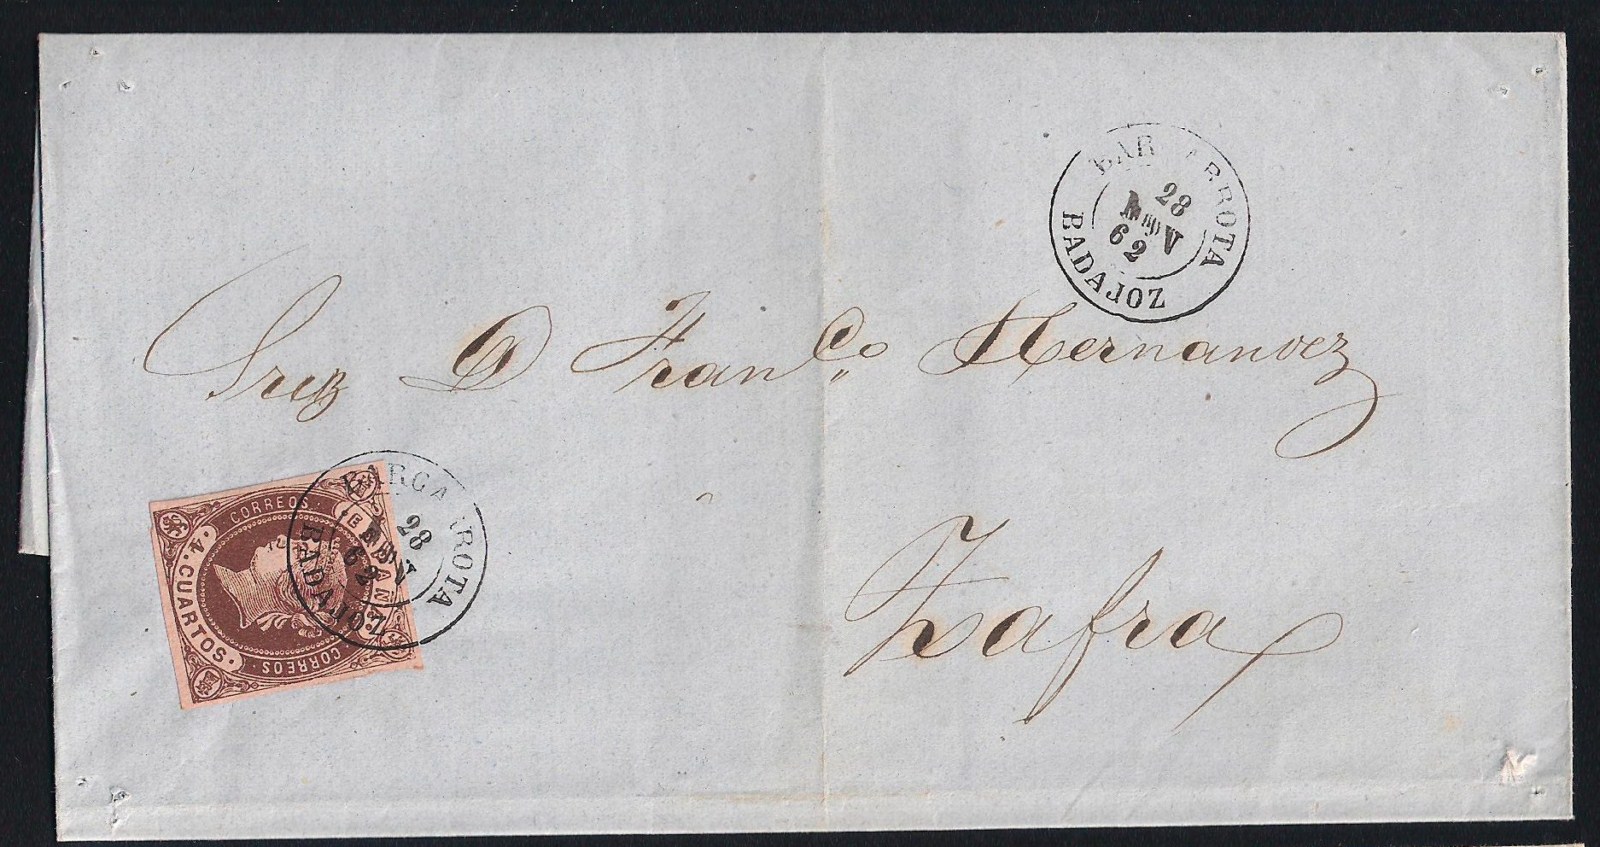 BAR ARROTA
28
NOV
62
BADAJOZ
D Fran.co Hernandez
Zafra
CORREOS
ESPAÑA
4 CUARTOS.
CORREOS
BARCA ROTA
28
NOV
62
BADAJOZ